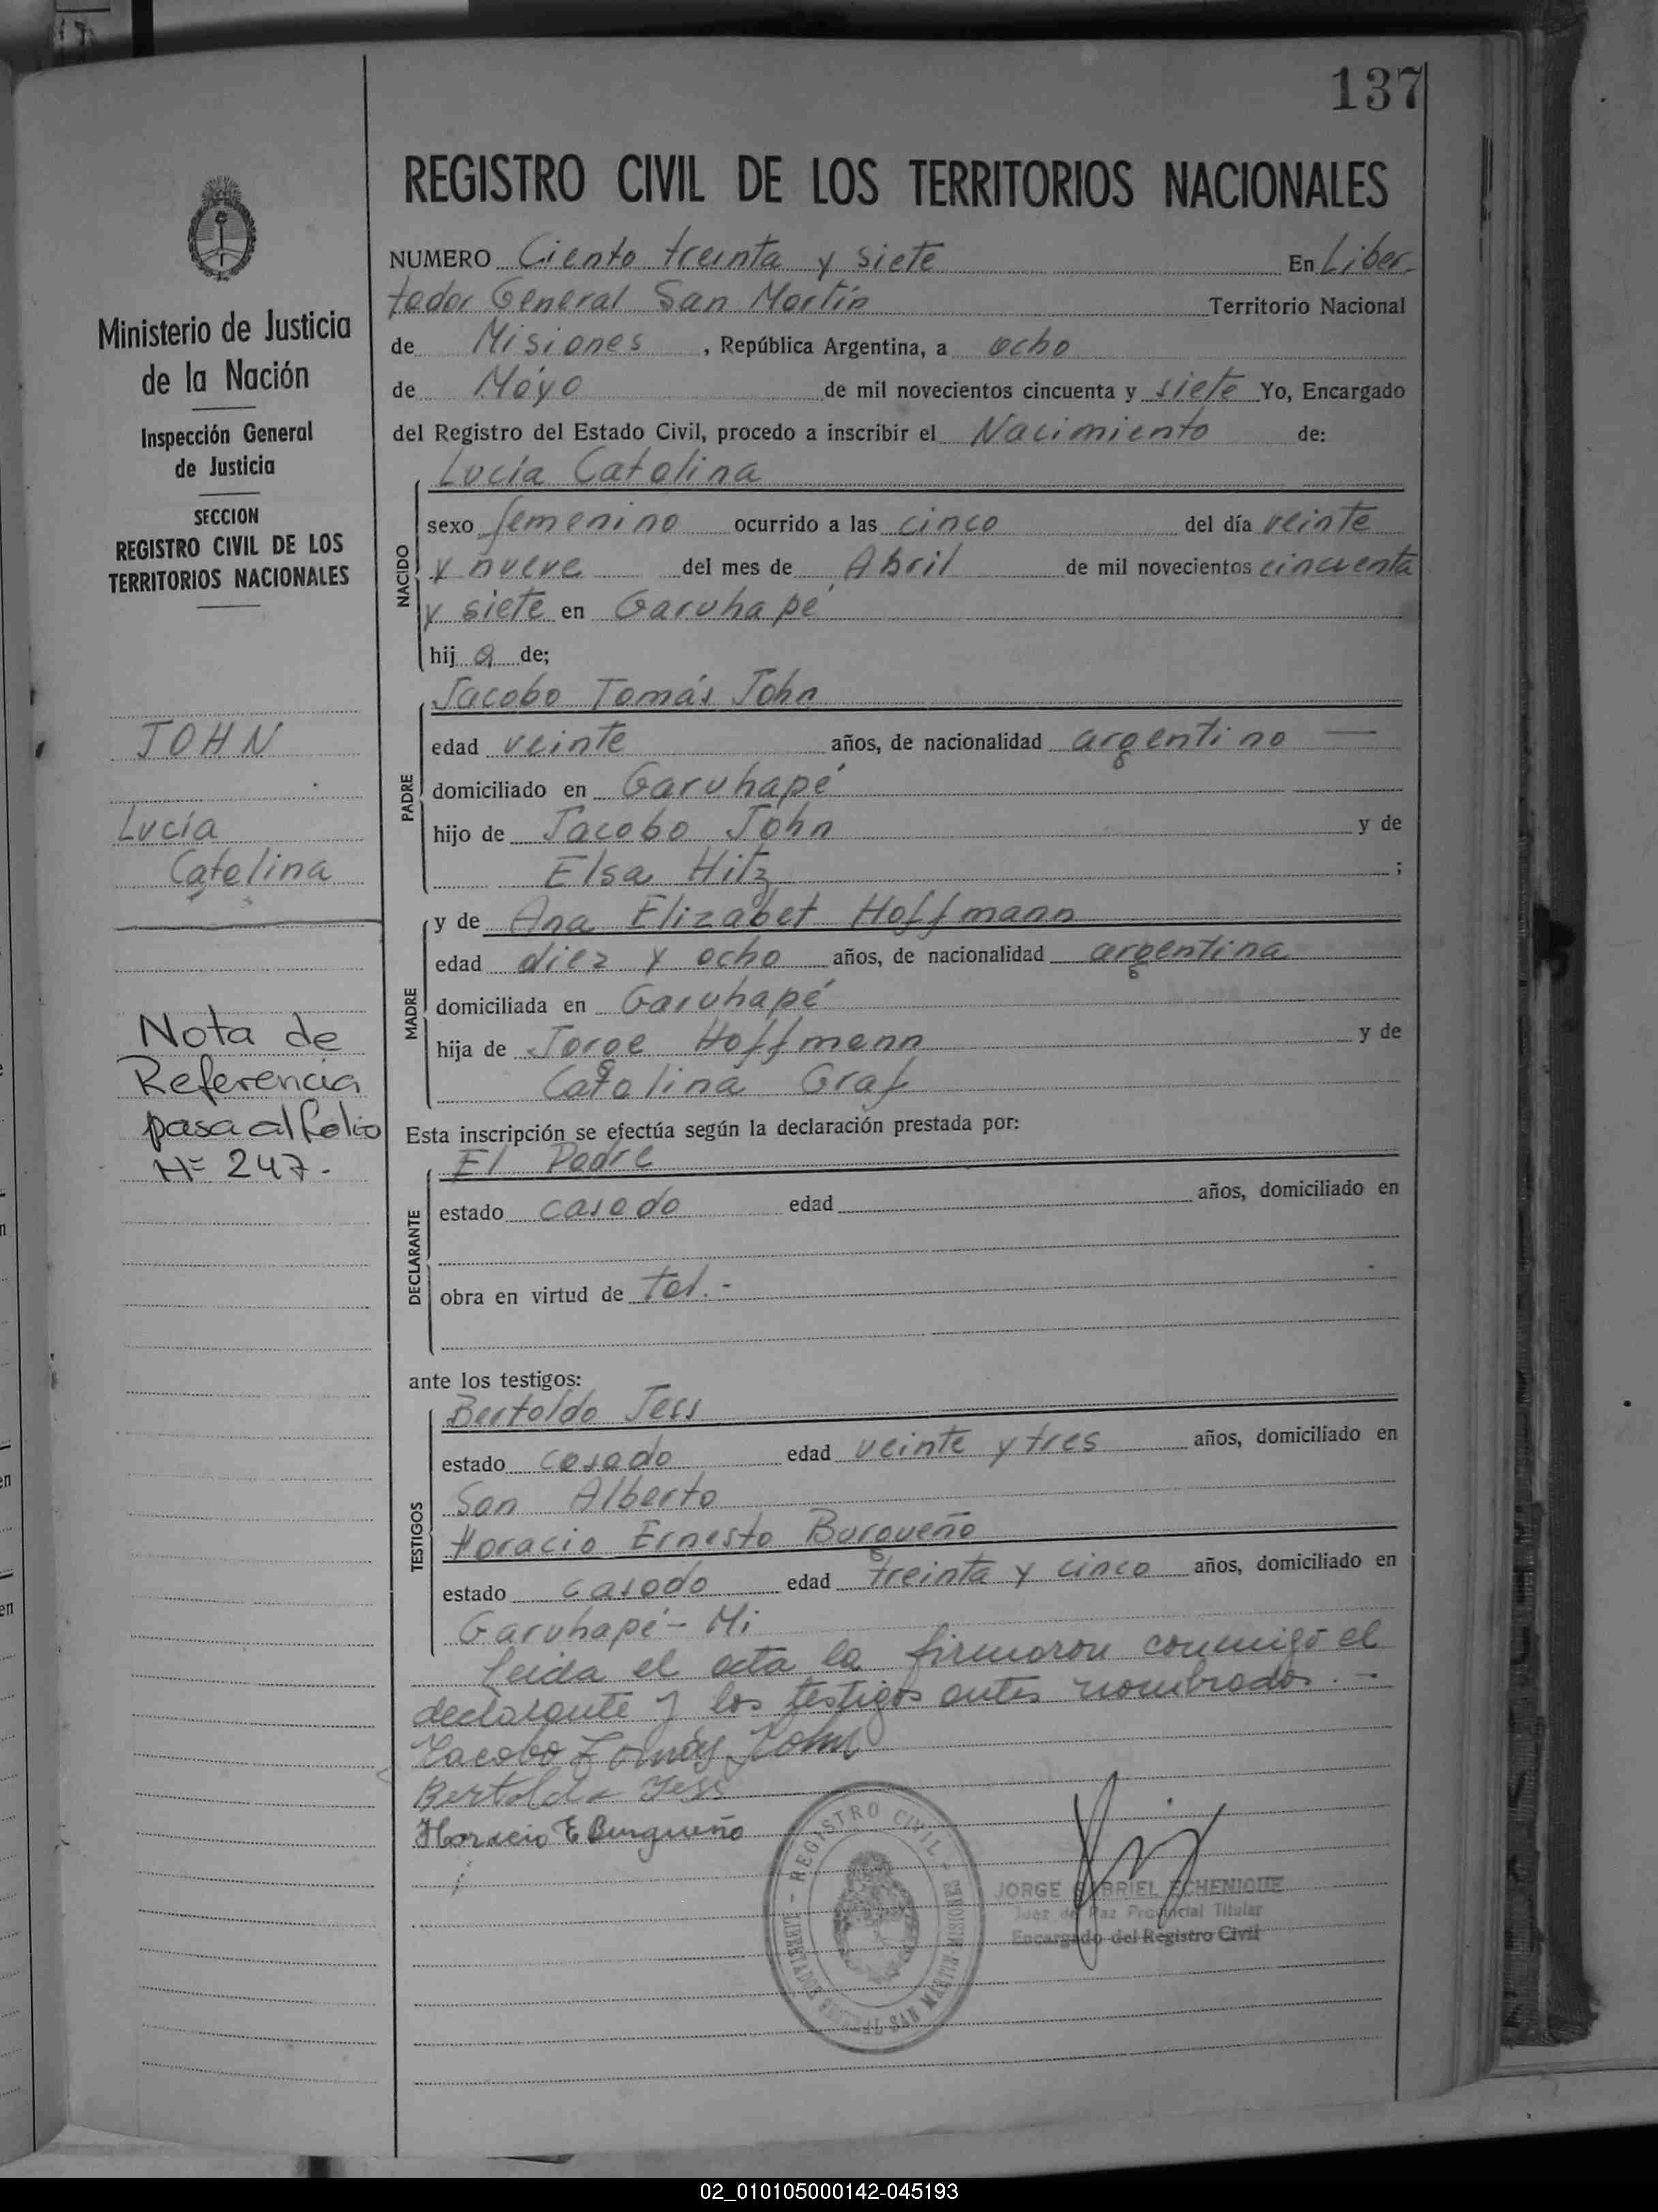 137
REGISTRO CIVIL DE LOS TERRITORIOS NACIONALES
Ministerio de Justicia
de la Nación
Inspección General
de Justicia
SECCION
REGISTRO CIVIL DE LOS
TERRITORIOS NACIONALES
JOHN
Lucía
Catalina
Nota de
Referencia
pasa al folio
Nº 247.-
NUMERO Ciento treinta y siete En Liber-
tador General San Martín Territorio Nacional
de Misiones, República Argentina, a ocho
de Mayo de mil novecientos cincuenta y siete Yo, Encargado
del Registro del Estado Civil, procedo a inscribir el Nacimiento de:
NACIDO
Lucía Catalina
sexo femenino ocurrido a las cinco del día veinte
y nueve del mes de Abril de mil novecientos cincuenta
y siete en Garuhapé
hij a de;
PADRE
Jacobo Tomás John
edad veinte años, de nacionalidad argentino —
domiciliado en Garuhapé
hijo de Jacobo John y de
Elsa Hitz ;
MADRE
y de Ana Elizabet Hoffmann
edad diez y ocho años, de nacionalidad argentina
domiciliada en Garuhapé
hija de Jorge Hoffmann y de
Catalina Graf
Esta inscripción se efectúa según la declaración prestada por:
DECLARANTE
El Padre
estado casado edad años, domiciliado en
obra en virtud de tal.-
ante los testigos:
TESTIGOS
Bertoldo Jess
estado casado edad veinte y tres años, domiciliado en
San Alberto
Horacio Ernesto Burgueño
estado casado edad treinta y cinco años, domiciliado en
Garuhapé - Mi
Leida el acta la firmaron conmigo el
declarante y los testigos antes nombrados.-
Jacobo Tomás John
Bertoldo Jess
Horacio E Burgueño
REGISTRO CIVIL - LIBERTADOR GENERAL SAN MARTIN MISIONES
JORGE GABRIEL ECHENIQUE
Juez de Paz Provincial Titular
Encargado del Registro Civil
02_010105000142-045193